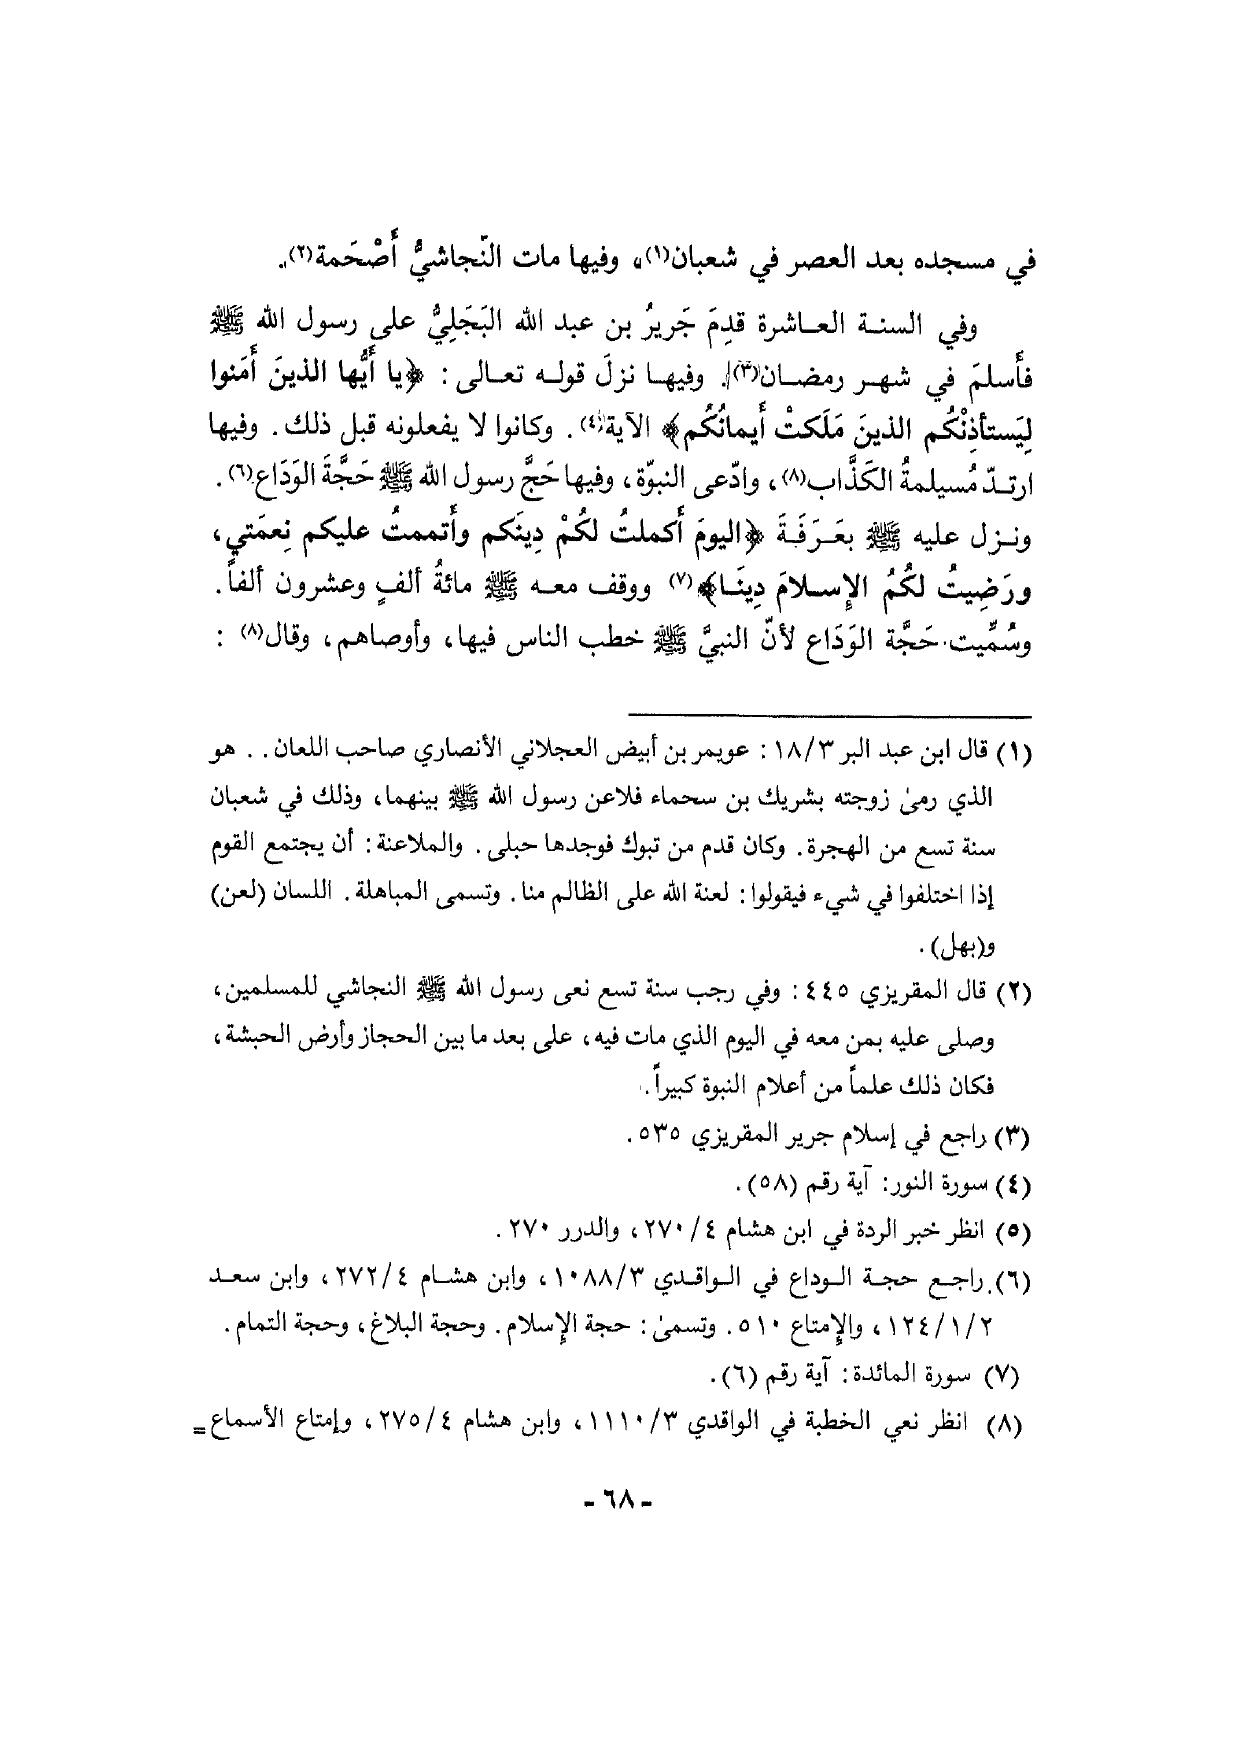 في مسجده بعد العصر في شعبان(١)، وفيها مات النّجاشيُّ أَصْحَمة(٢).
وفي السنة العاشرة قدِمَ جَريرُ بن عبد الله البَجَلِيُّ على رسول الله ﷺ
فأَسلمَ في شهر رمضان(٣). وفيها نزلَ قوله تعالى: ﴿يا أَيُّها الذينَ أَمَنوا
لِيَستأذِنْكُم الذينَ مَلَكتْ أَيمانُكُم﴾ الآية(٤). وكانوا لا يفعلونه قبل ذلك. وفيها
ارتدّ مُسيلمةُ الكَذَّاب(٨)، وادّعى النبوّة، وفيها حَجَّ رسول الله ﷺ حَجَّةَ الوَدَاع(٦).
ونزل عليه ﷺ بعَرَفَةَ ﴿اليومَ أَكملتُ لكُمْ دِينَكم وأَتممتُ عليكم نِعمَتي،
ورَضِيتُ لكُمُ الإِسلامَ دِينَا﴾(٧) ووقف معه ﷺ مائةُ ألفٍ وعشرون ألفاً.
وسُمِّيت حَجَّة الوَدَاع لأنّ النبيَّ ﷺ خطب الناس فيها، وأوصاهم، وقال(٨):
(١) قال ابن عبد البر ١٨/٣: عويمر بن أبيض العجلاني الأنصاري صاحب اللعان.. هو
الذي رمىٰ زوجته بشريك بن سحماء فلاعن رسول الله ﷺ بينهما، وذلك في شعبان
سنة تسع من الهجرة. وكان قدم من تبوك فوجدها حبلى. والملاعنة: أن يجتمع القوم
إذا اختلفوا في شيء فيقولوا: لعنة الله على الظالم منا. وتسمى المباهلة. اللسان (لعن)
و(بهل).
(٢) قال المقريزي ٤٤٥: وفي رجب سنة تسع نعى رسول الله ﷺ النجاشي للمسلمين،
وصلى عليه بمن معه في اليوم الذي مات فيه، على بعد ما بين الحجاز وأرض الحبشة،
فكان ذلك علماً من أعلام النبوة كبيراً.
(٣) راجع في إسلام جرير المقريزي ٥٣٥.
(٤) سورة النور: آية رقم (٥٨).
(٥) انظر خبر الردة في ابن هشام ٢٧٠/٤، والدرر ٢٧٠.
(٦) راجع حجة الوداع في الواقدي ١٠٨٨/٣، وابن هشام ٢٧٢/٤، وابن سعد
١٢٤/١/٢، والإمتاع ٥١٠. وتسمىٰ: حجة الإسلام. وحجة البلاغ، وحجة التمام.
(٧) سورة المائدة: آية رقم (٦).
(٨) انظر نعي الخطبة في الواقدي ١١١٠/٣، وابن هشام ٢٧٥/٤، وإمتاع الأسماع=
- ٦٨ -